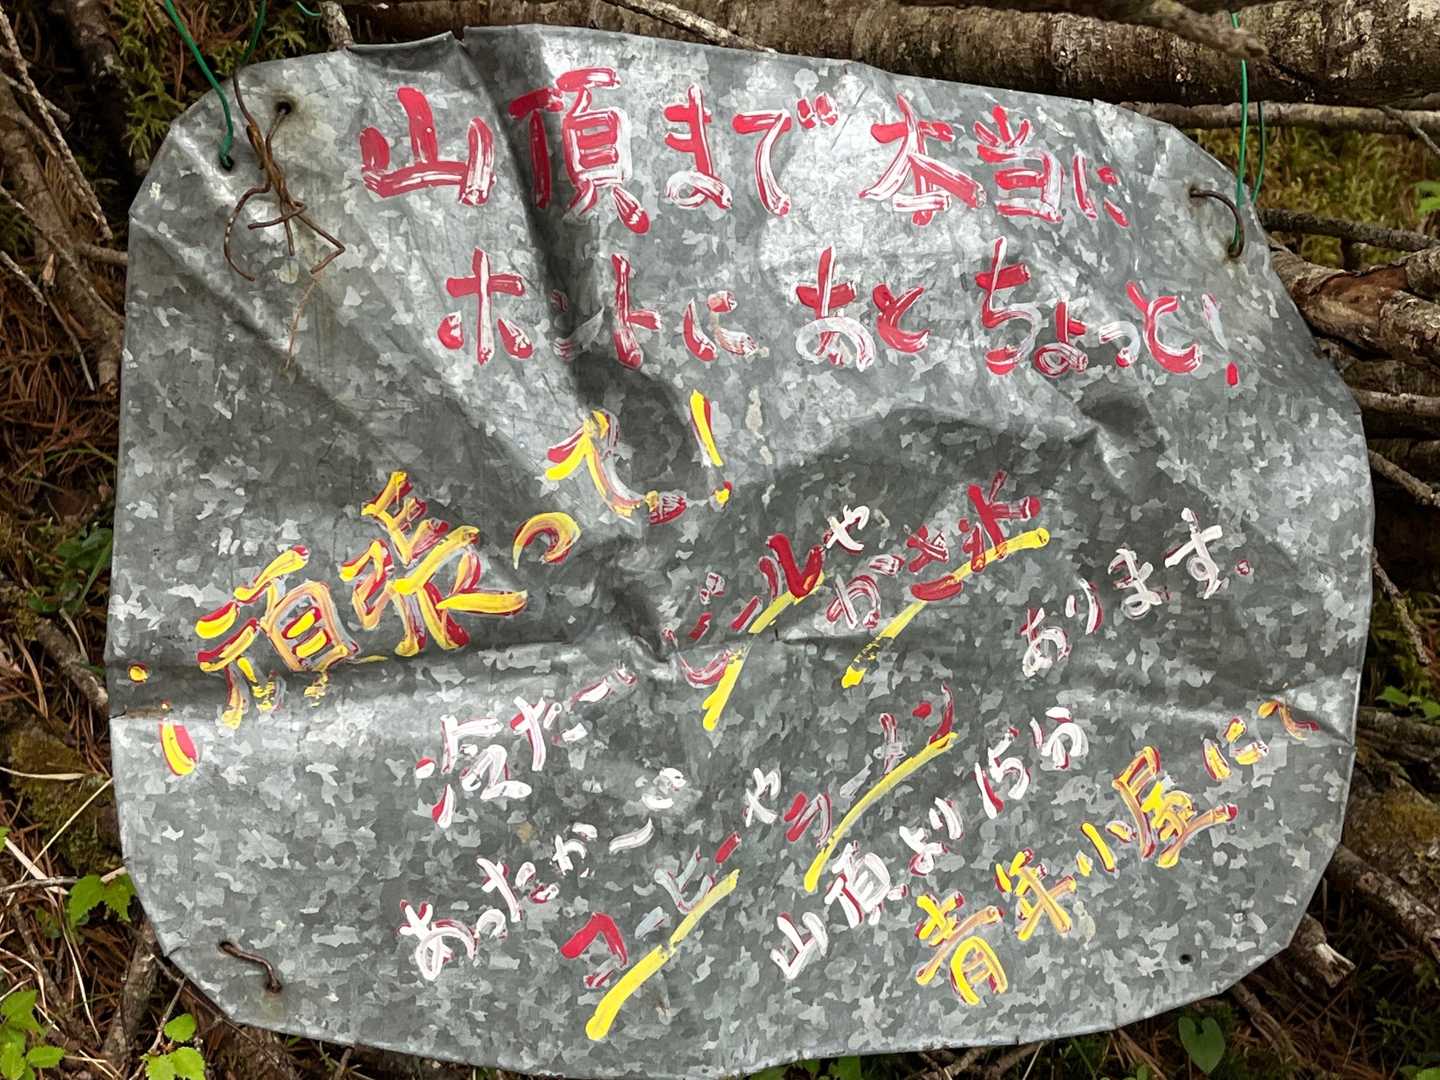 山頂まで 本当に
ホントに あと ちょっと!
頑張って!
冷たーい ビールや かき氷 あります。
あったか〜い コーヒーや ワイン
山頂より15分
青年小屋にて